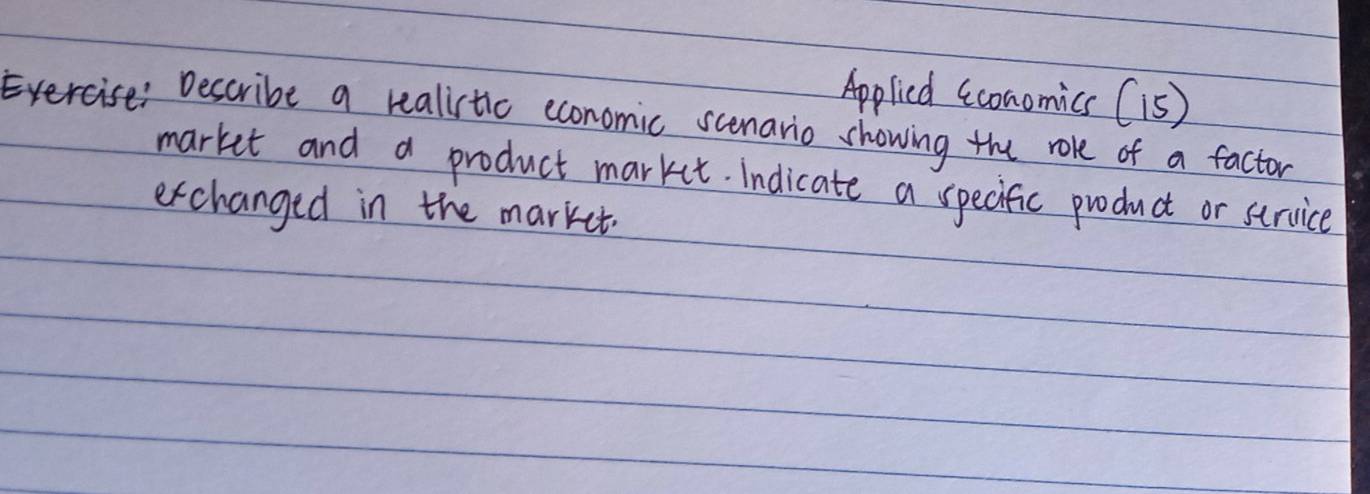 Applied Economics (15)
Exercise: Describe a realistic economic scenario showing the role of a factor
market and a product market. Indicate a specific product or service
exchanged in the market.